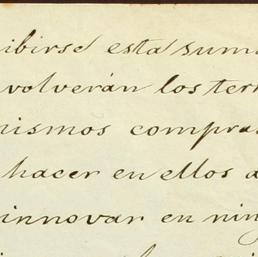 ibirse esta sum
volverán los ter
mismos compra
hacer en ellos a
innovar en nin